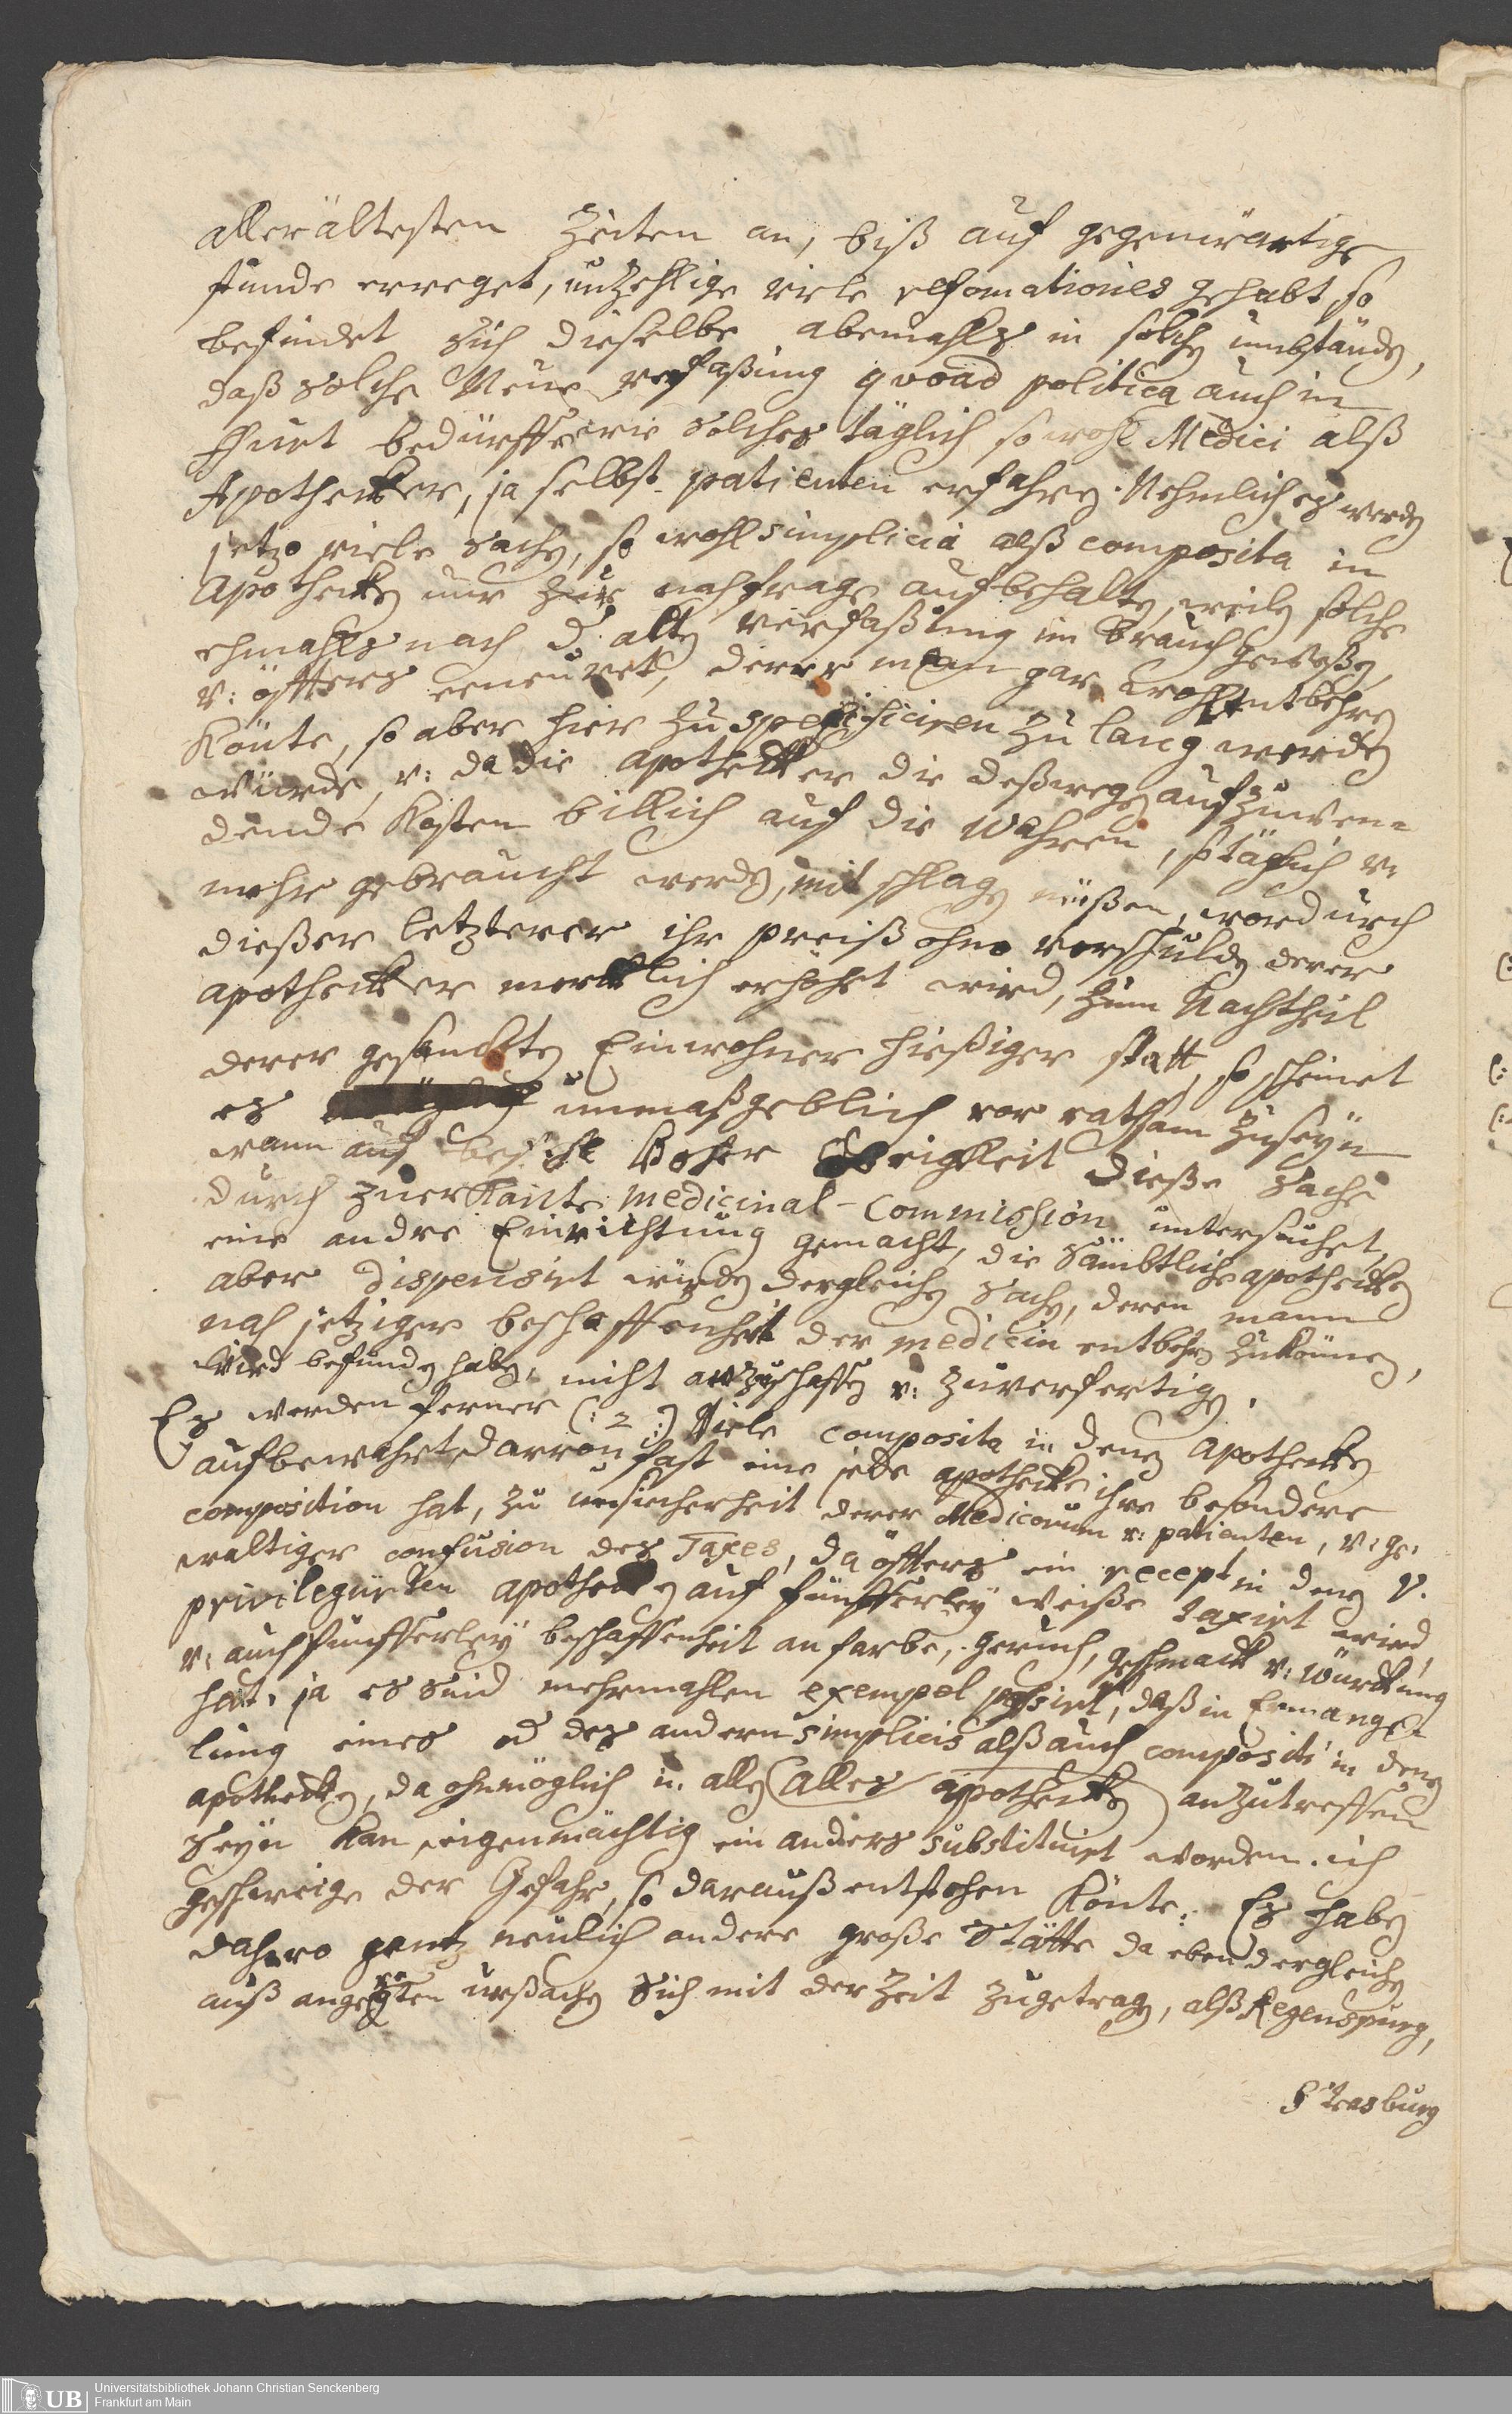 allerältesten Zeiten an, biß auf gegenwärtige
stunde erreget, unzehlige viele refomationes gehabt, so
befindet sich dieselbe abermahls in solchen umbständen,
daß solche Neue verfaßung qvoad politica auch in
bedürffte, wie solches täglich so wohl Medici alß
Apothecker, ja selbst patienten erfahren. Nehmlich es werden
jetzo viele sachen, so wohl simplicia alß composita in
Apothecken nur zur nachfrage aufbehalten, weilen solche
ehmahls nach d. alten verfaßung im brauch geweßen,
v: öffters erneuret, derer man gar wohl entbehren
könte, so aber hier zu specificiren zu lang werden
würde, v: da die apothecker die deßwegen aufzuwen-
dende Kosten billich auf die Wahren, so täglich v:
mehr gebraucht werden, mit schlagen müßen, wordurch
dießer letzterer ihr preiß ohne verschulden derer
apothecker mercklich erhöhet wird, zum Nachtheil
derer gesambten Einwohner hießiger statt, so scheinet
es unmaßgeblich vor rathsam zuseyn
wann auf befehl Hoher Obrigkeit dieße sache
durch zuerkante medicinal-Commission untersuchet,
eine andre Einrichtung gemacht, die sämbtliche apothecken
aber dispensirt würden dergleichen sachen, deren mann
nach jetziger beschaffenheit der medicin entbehren zukönnen,
wird befunden haben, nicht anzuschaffen v: zuverfertigen.
Es werden ferner (:2:) Viele composita in denen Apothecken
aufbewahret darvon fast eine jede apothecke ihre besondere
composition hat, zu unsicherheit derer Medicorum v: patienten, v: ge-
waltiger confusion des Taxes, da öffters ein recept in denen V.
privilegirten apothecken auf fünfferley weiße taxirt wird,
v: auch fünfferley beschaffenheit an farbe, geruch, geschmack v: würckung
hat. ja es sind mehrmahlen exempel passirt, daß in Ermange-
lung eines od des andern simplicis alß auch compositi in denen
apothecken, da ohnmöglich in allen alles apothecken anzutreffen
seyn kan, eigenmächtig ein anders substituirt worden. ich
geschweige der Gefahr, so darauß entstehen könte. Es haben
dahero gantz neulich andere große Stätte da eben dergleichen
auß angeregten urßachen sich mit der Zeit zugetragen, alß Regenspurg,
Strasburg
Universitätsbibliothek Johann Christian Senckenberg
Frankfurt am Main
UB